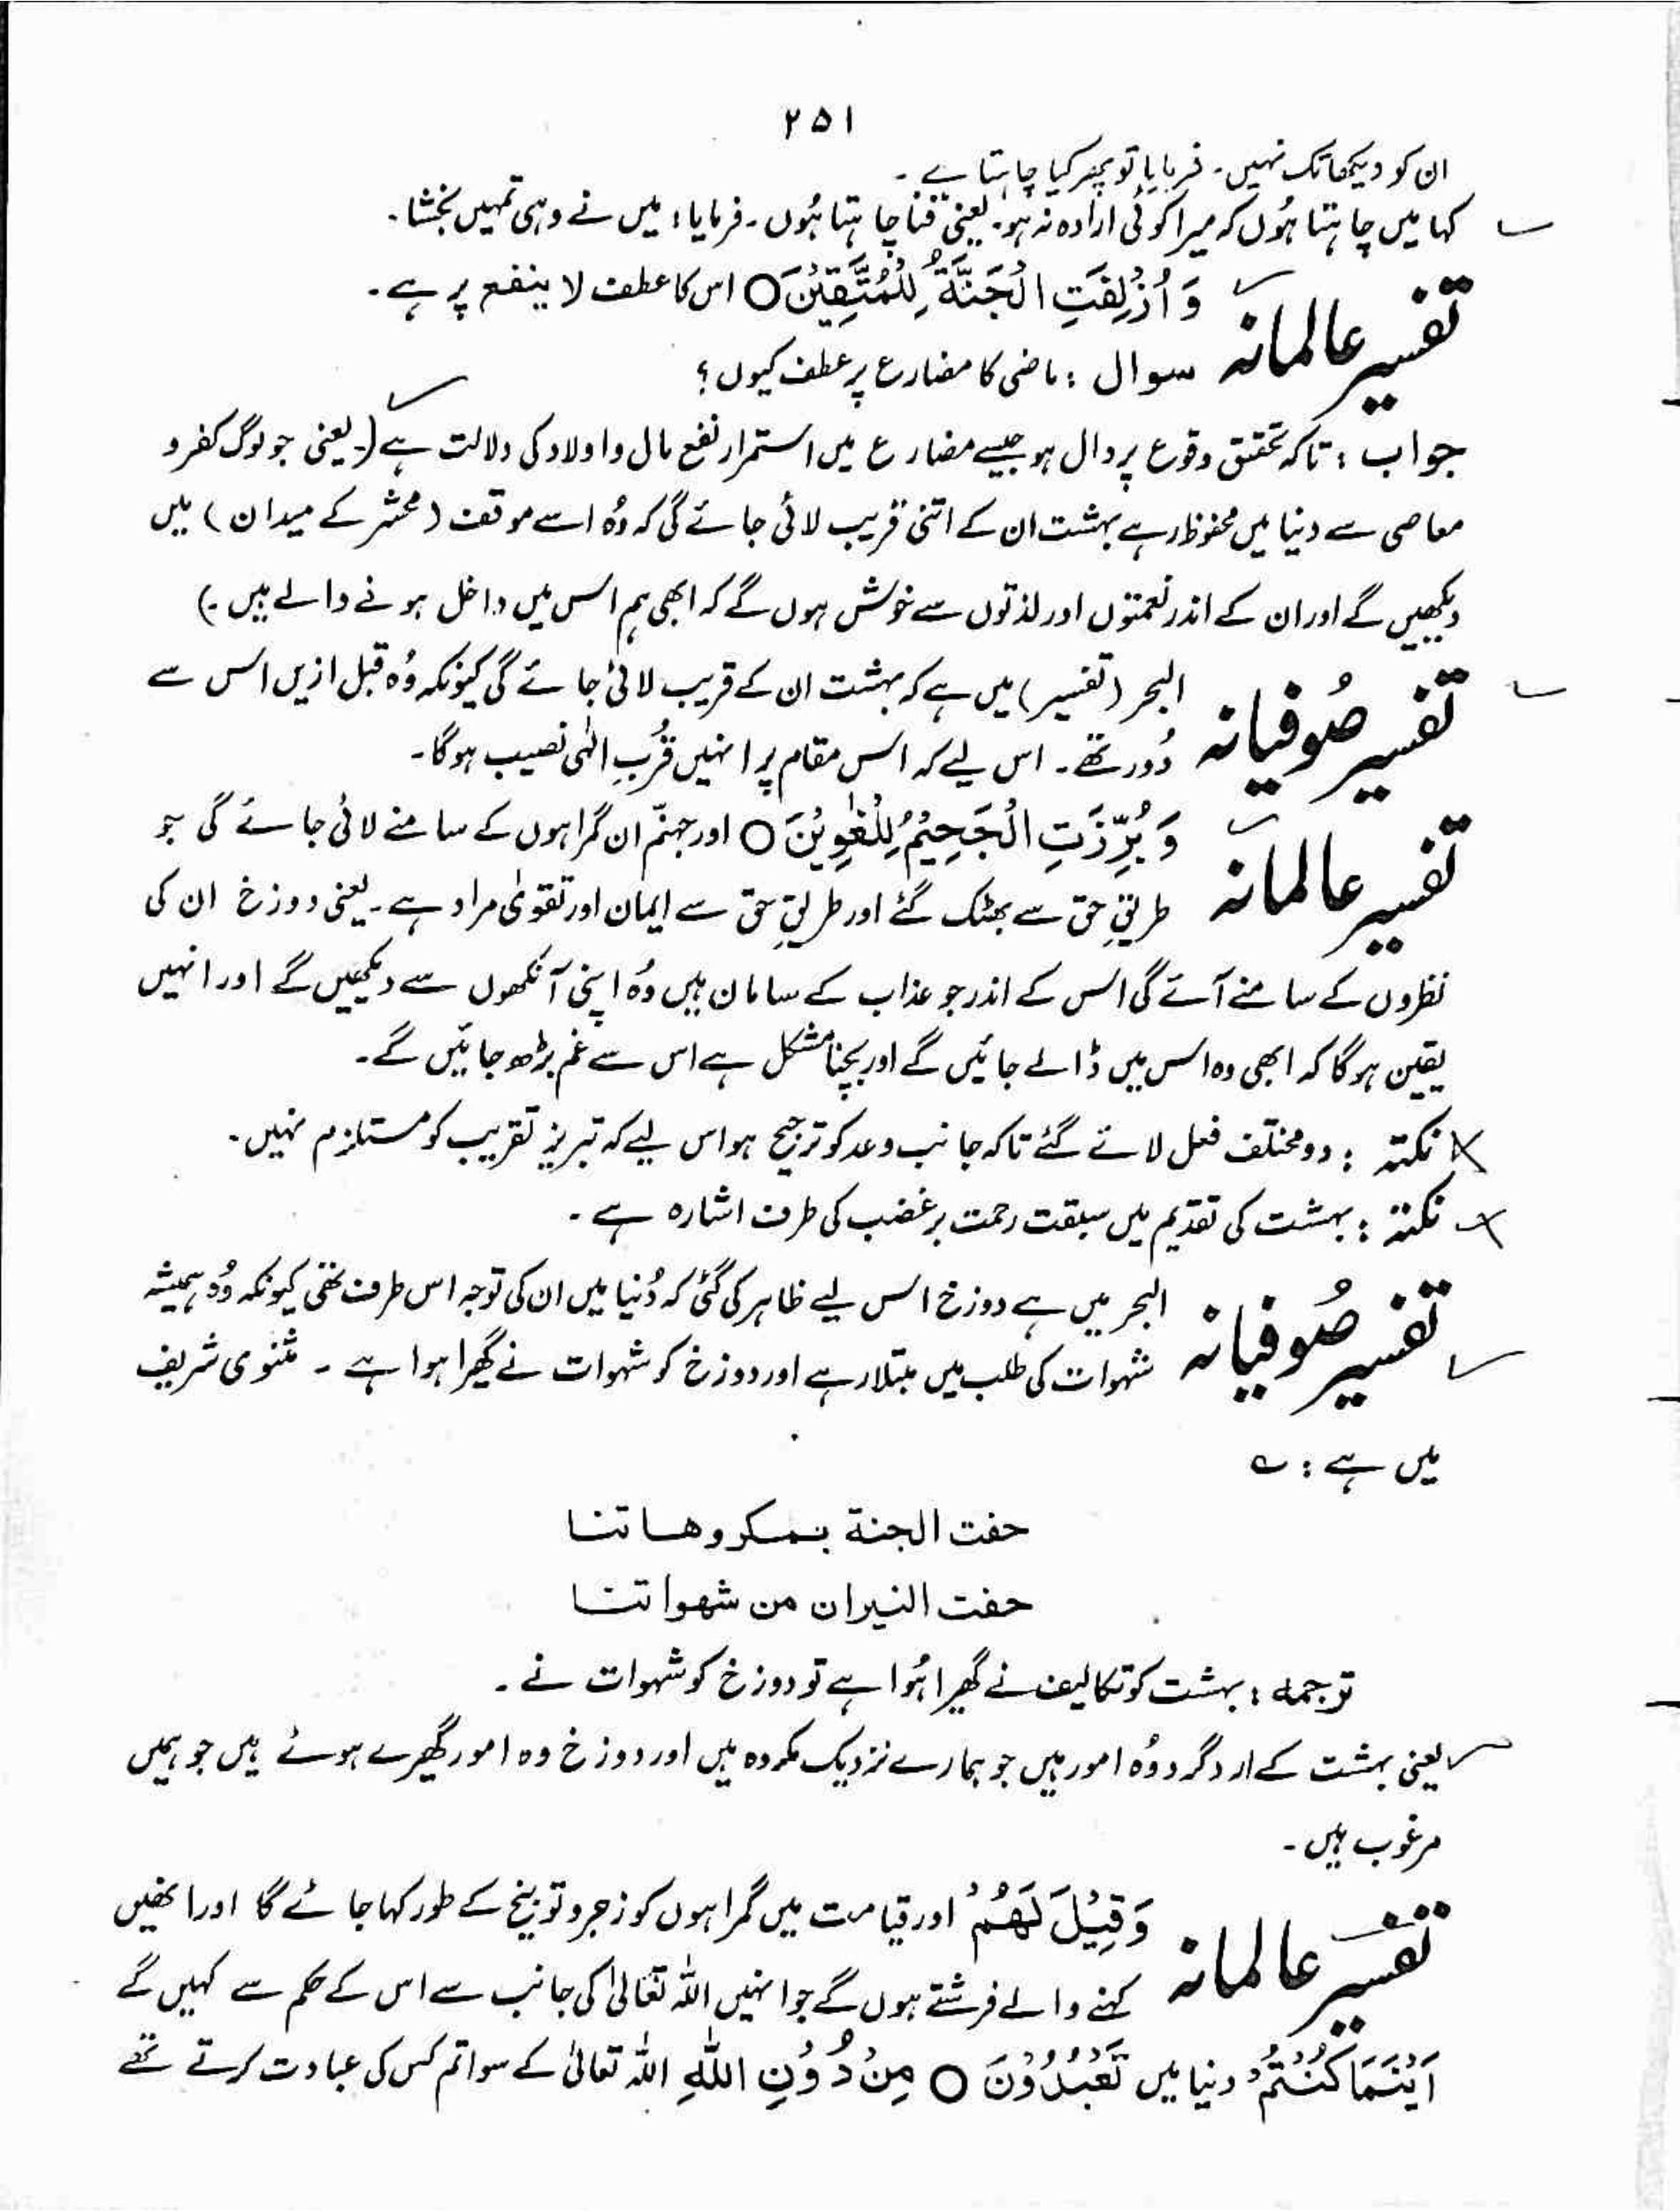 ۲۵۱
ان کو دیکھا تک نہیں۔ فرمایا تو پھر کیا چاہتا ہے۔
کہا میں چاہتا ہُوں کہ میرا کوئی ارادہ نہ ہو۔ یعنی فنا چاہتا ہُوں۔ فرمایا، میں نے وہی تمہیں بخشا۔
تفسیر عالمانہ
وَ اُزْلِفَتِ الْجَنَّةُ لِلْمُتَّقِيْنَ ○ اس کا عطف لا ینفع پر ہے۔
سوال : ماضی کا مضارع پر عطف کیوں؟
جواب : تاکہ تحقق وقوع پر دال ہو جیسے مضارع میں استمرار نفع مال و اولاد کی دلالت ہے (یعنی جو لوگ کفر و
معاصی سے دنیا میں محفوظ رہے بہشت ان کے اتنی قریب لائی جائے گی کہ وُہ اسے موقف (محشر کے میدان) میں
دیکھیں گے اور ان کے اندر نعمتوں اور لذتوں سے خوش ہوں گے کہ ابھی ہم اس میں داخل ہونے والے ہیں۔)
تفسیر صُوفیانہ
البحر (تفسیر) میں ہے کہ بہشت ان کے قریب لائی جائے گی کیونکہ وُہ قبل ازیں اس سے
دُور تھے۔ اس لیے کہ اس مقام پر انہیں قُربِ الٰہی نصیب ہوگا۔
تفسیر عالمانہ
وَ بُرِّزَتِ الْجَحِيْمُ لِلْغٰوِيْنَ ○ اور جہنّم ان گمراہوں کے سامنے لائی جائے گی جو
طریقِ حق سے بھٹک گئے اور طریقِ حق سے ایمان اور تقویٰ مراد ہے۔ یعنی دوزخ ان کی
نظروں کے سامنے آئے گی اس کے اندر جو عذاب کے سامان ہیں وُہ اپنی آنکھوں سے دیکھیں گے اور انہیں
یقین ہوگا کہ ابھی وہ اس میں ڈالے جائیں گے اور بچنا مشکل ہے اس سے غم بڑھ جائیں گے۔
نکتہ : دو مختلف فعل لائے گئے تاکہ جانب وعد کو ترجیح ہو اس لیے کہ تبریز تقریب کو مستلزم نہیں۔
نکتہ : بہشت کی تقدیم میں سبقت رحمت بر غضب کی طرف اشارہ ہے۔
تفسیر صُوفیانہ
البحر میں ہے دوزخ اس لیے ظاہر کی گئی کہ دُنیا میں ان کی توجہ اس طرف تھی کیونکہ وُہ ہمیشہ
شہوات کی طلب میں مبتلا رہے اور دوزخ کو شہوات نے گھیرا ہوا ہے۔ مثنوی شریف
میں ہے : ؎
حفت الجنة بمكروهاتنا
حفت النيران من شهواتنا
ترجمہ : بہشت کو تکالیف نے گھیرا ہُوا ہے تو دوزخ کو شہوات نے۔
یعنی بہشت کے ارد گرد وُہ امور ہیں جو ہمارے نزدیک مکروہ ہیں اور دوزخ وہ امور گھیرے ہوئے ہیں جو ہمیں
مرغوب ہیں۔
تفسیر عالمانہ
وَقِيْلَ لَهُمْ اور قیامت میں گمراہوں کو زجر و توبیخ کے طور کہا جائے گا اور انھیں
کہنے والے فرشتے ہوں گے جو انہیں اللہ تعالیٰ کی جانب سے اس کے حکم سے کہیں گے
اَيْنَمَا كُنْتُمْ دنیا میں تَعْبُدُوْنَ ○ مِنْ دُوْنِ اللّٰهِ اللہ تعالیٰ کے سوا تم کس کی عبادت کرتے تھے